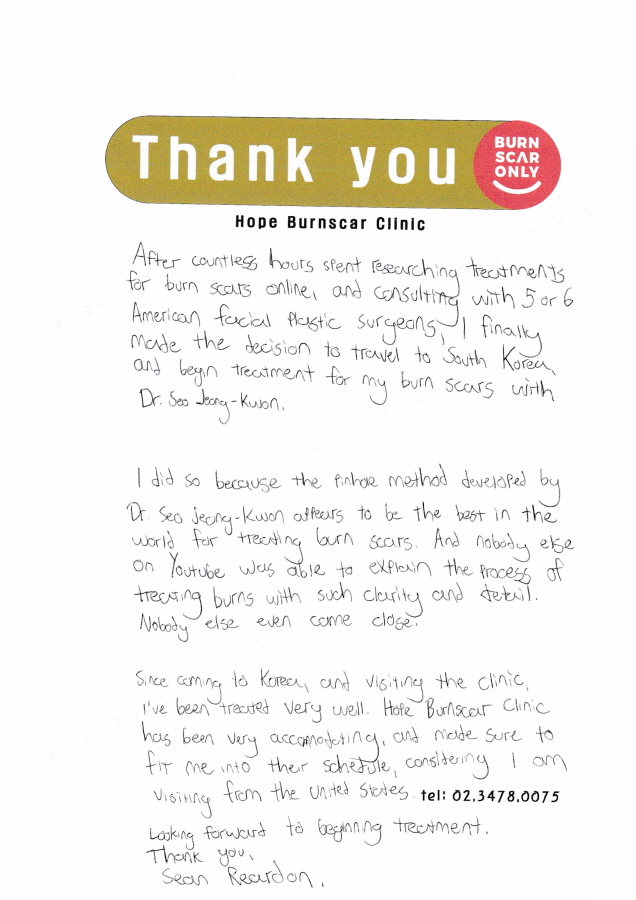 Thank you
BURN
SCAR
ONLY
Hope Burnscar Clinic
After countless hours spent researching treatments
for burn scars online, and consulting with 5 or 6
American facial plastic surgeons, I finally
made the decision to travel to South Korea,
and begin treatment for my burn scars with
Dr. Seo Jeong-Kwon.
I did so because the pinhole method developed by
Dr. Seo Jeong-Kwon appears to be the best in the
world for treating burn scars. And nobody else
on Youtube was able to explain the process of
treating burns with such clarity and detail.
Nobody else even came close.
Since coming to Korea, and visiting the clinic,
I've been treated very well. Hope Burnscar Clinic
has been very accomodating, and made sure to
fit me into their schedule, considering I am
visiting from the United States. tel: 02.3478.0075
Looking forward to beginning treatment.
Thank you,
Sean Reardon.